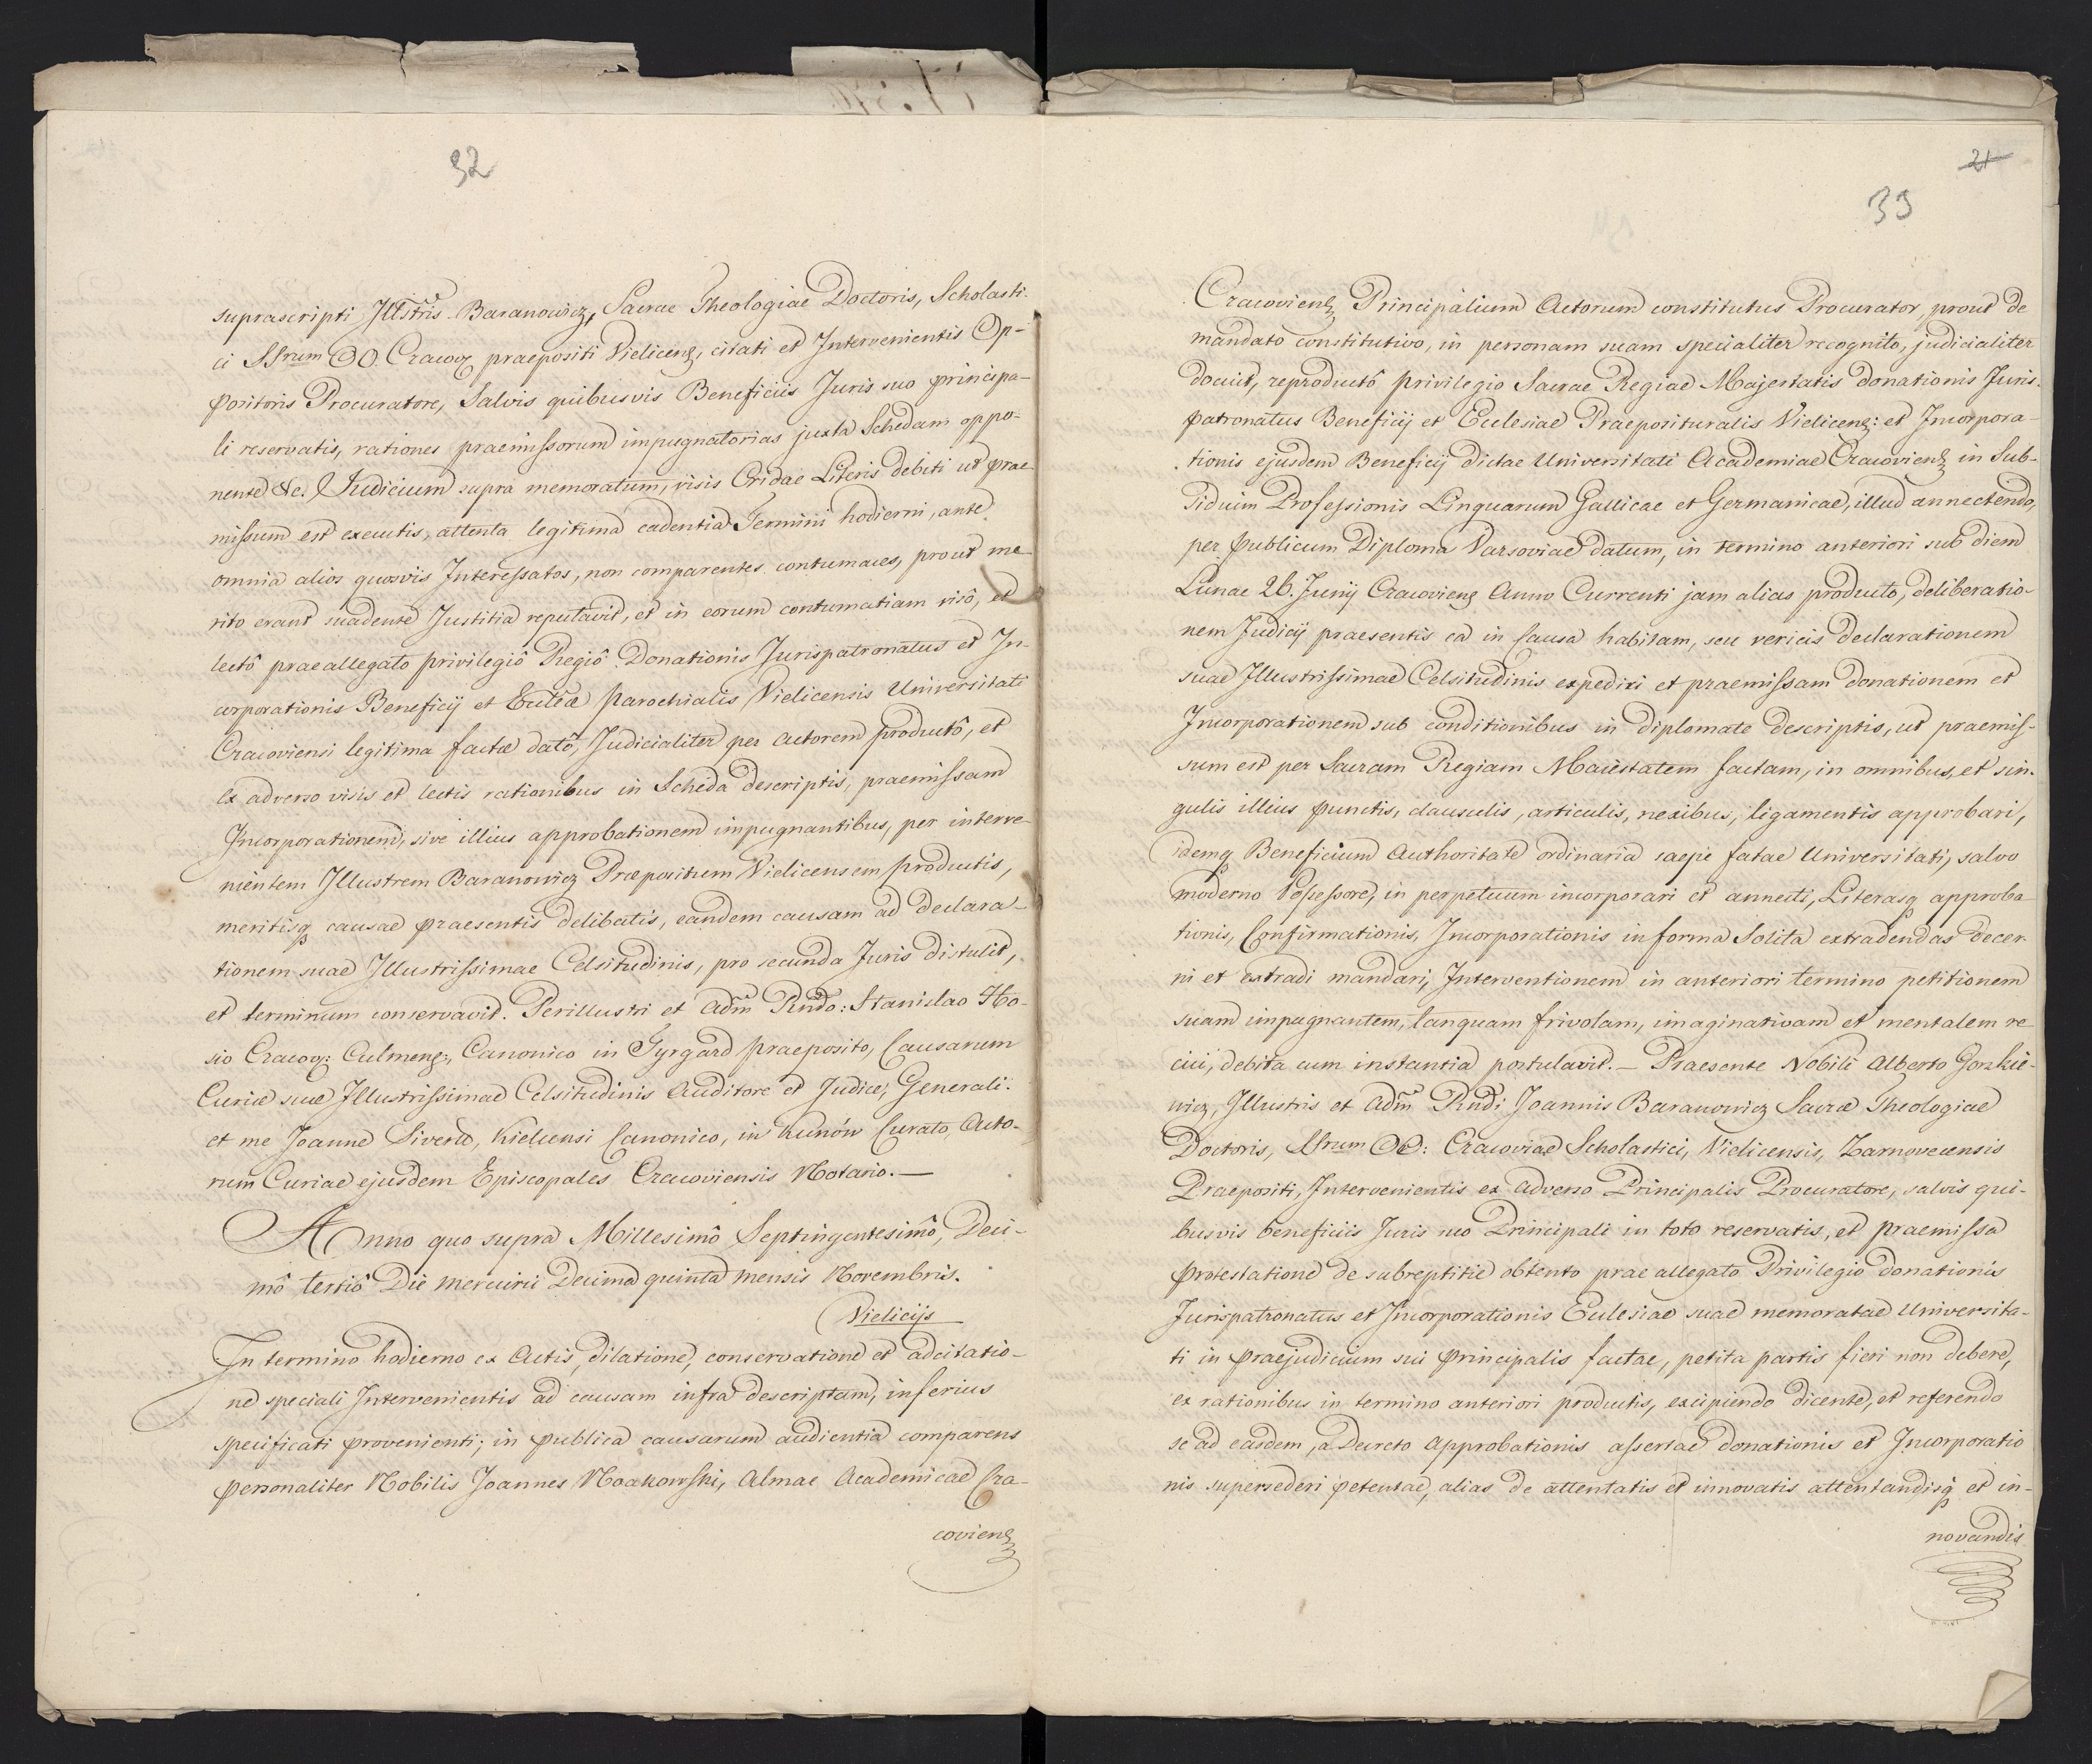 32
suprascripti Illstris Baranowicz, Sacrae Theologiae Doctoris, Scholasti-
ci SSrum OO. Cracov praepositi Vielicens, citati et Intervenientis Op-
positoris Procuratore, Salvis quibusvis Beneficiis Juris suo principa-
li reservatis, rationes praemissorum impugnatorias juxta Schedam oppo-
nente &c. Judicium supra memoratum, visis Cridae Literis debiti ut prae-
missum est executis, attenta legitima cadentia Termini hodierni, ante
omnia alios quosviis Interessatos, non comparentes contumaces, prout me-
rito erant suadente Justitia reputavit, et in eorum contumatiam visô, et
lectô praeallegato privilegiô Regiô Donationis Jurispatronatus et In-
corporationis Beneficij et Ecclæ parochialis Vielicensis Universitati
Cracoviensi legitima factæ datô, Judicialiter per Actorem productô, et
ex adverso visis et lectis rationibus in Scheda descriptis, praemissam
Incorporationem, sive illius approbationem impugnantibus, per interve-
nientem Illustrem Baranowicz Præpositum Vielicensem productis,
meritisq causae praesentis delibatis, eandem causam ad declara-
tionem suae Illustrissimae Celsitudinis, pro secunda Juris distulit,
et terminum conservavit. Perillustri et Adm Rndo: Stanislao Ho-
sio Cracov: Culmens:, Canonico in Gyrgard praeposito, Causarum
Curiæ suæ Illustrissimae Celsitudinis Auditore et Judice, Generali.
et me Joanne Siverd, Kielcensi Canonico, in Kunów Curato, Acto-
rum Curiae ejusdem Episcopales Cracoviensis Notario.—
Anno quo supra Millesimô Septingentesimô, Deci-
mô tertiô Die mercurii Decima quinta mensis Novembris.
Vielicijs
In termino hodierno ex Actis, dilatione, conservatione et adcitatio-
ne speciali Intervenientis ad causam infra descriptam, inferius
specificati provenienti; in publica causarum audientia comparens
personaliter Nobilis Joannes Noakowski, Almae Academicae Cra-
coviens
21
33
Cracoviens Principalium Actorum constitutus Procurator, prout de
mandato constitutivo, in personam suam specialiter recognito, judicialiter
docuit, reproductô privilegio Sacrae Regiae Majestatis donationis Juris-
patronatus Beneficij et Ecclesiae Praeposituralis Vielicens: et Incorpora-
tionis ejusdem Beneficij dictae Universitati Academiae Cracoviens in Sub-
sidium Professionis Linguarum Gallicae et Germanicae, illud annectendo,
per publicum Diploma Varsoviae datum, in termino anteriori sub diem
Lunae 26. Junij Cracoviens Anno Currenti jam alias producto, deliberatio-
nem Judicij praesentis ea in Causa habitam, seu verius declarationem
suae Illustrissimae Celsitudinis expediri et praemissam donationem et
Incorporationem sub conditionibus in diplomate descriptis, ut praemis-
sum est per Sacram Regiam Maiestatem factam, in omnibus, et sin-
gulis illius punctis, clausulis, articulis, nexibus, ligamentis approbari,
idemq Beneficium Authoritate ordinaria saepe fatae Universitati, salvo
moderno Possessore, in perpetuum incorporari et annecti, Literasq approba-
tionis, Confirmationis, Incorporationis in forma Solita extradendas decer-
ni et extradi mandari, Interventionem in anteriori termino petitionem
suam impugnantem, tanquam frivolam, imaginativam et mentalem re-
iici, debita cum instantia postulavit.— Praesente Nobili Alberto Gorzkie-
wicz, Illustris et Adm Rndi Joannis Baranowicz Sacræ Theologiae
Doctoris, SSrum OO: Cracoviae Scholastici, Vielicensis, Zarnovecensis
Praepositi, Intervenientis ex adverso Principalis Procuratore, salvis qui-
busvis beneficiis Juris suo Principali in toto reservatis, et praemissa
protestatione de subreptitie obtento prae allegato Privilegio donationis
Jurispatronatus et Incorporationis Ecclesiae suae memoratae Universita-
ti in praejudicium sui principalis factae, petita partis fieri non debere,
ex rationibus in termino anteriori productis, excipiendo dicente, et referendo
se ad easdem, a Decreto Approbationis assertae donationis et Incorporatio
nis supersederi petentae, alias de attentatis et innovatis attentandisq et in-
novandis